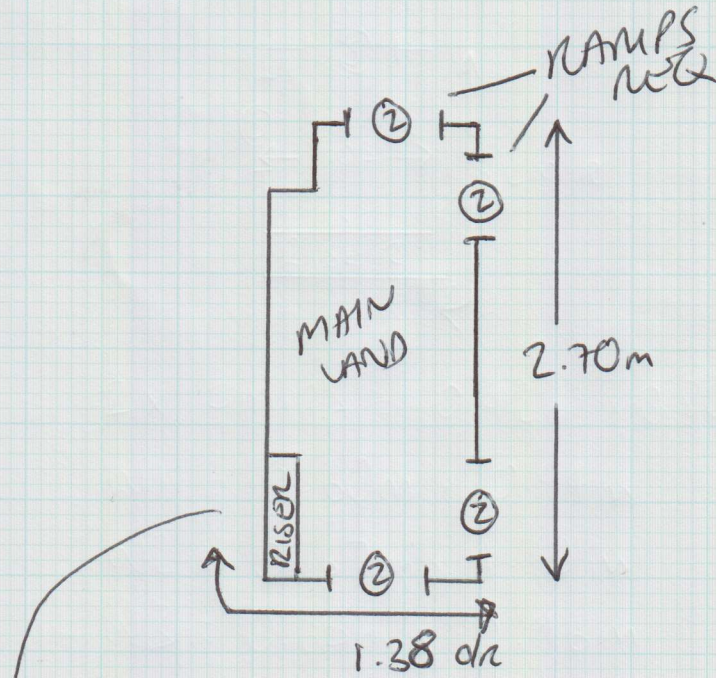 RAMPS
REQ
②
②
MAIN
LAND
2.70m
RISER
②
②
1.38 dr